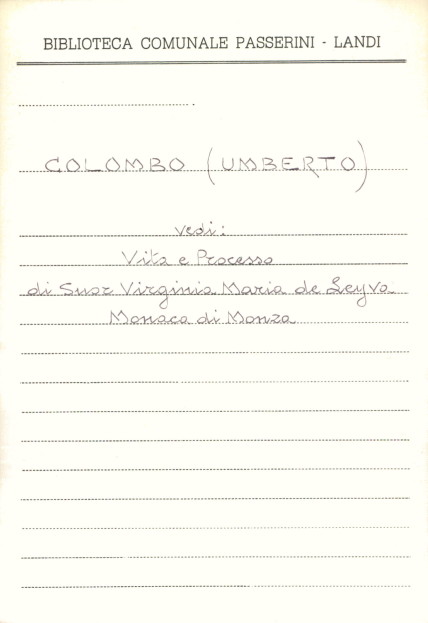 BIBLIOTECA COMUNALE PASSERINI - LANDI
COLOMBO (UMBERTO)
vedi:
Vita e Processo
di Suor Virginia Maria de Leyva
Monaca di Monza